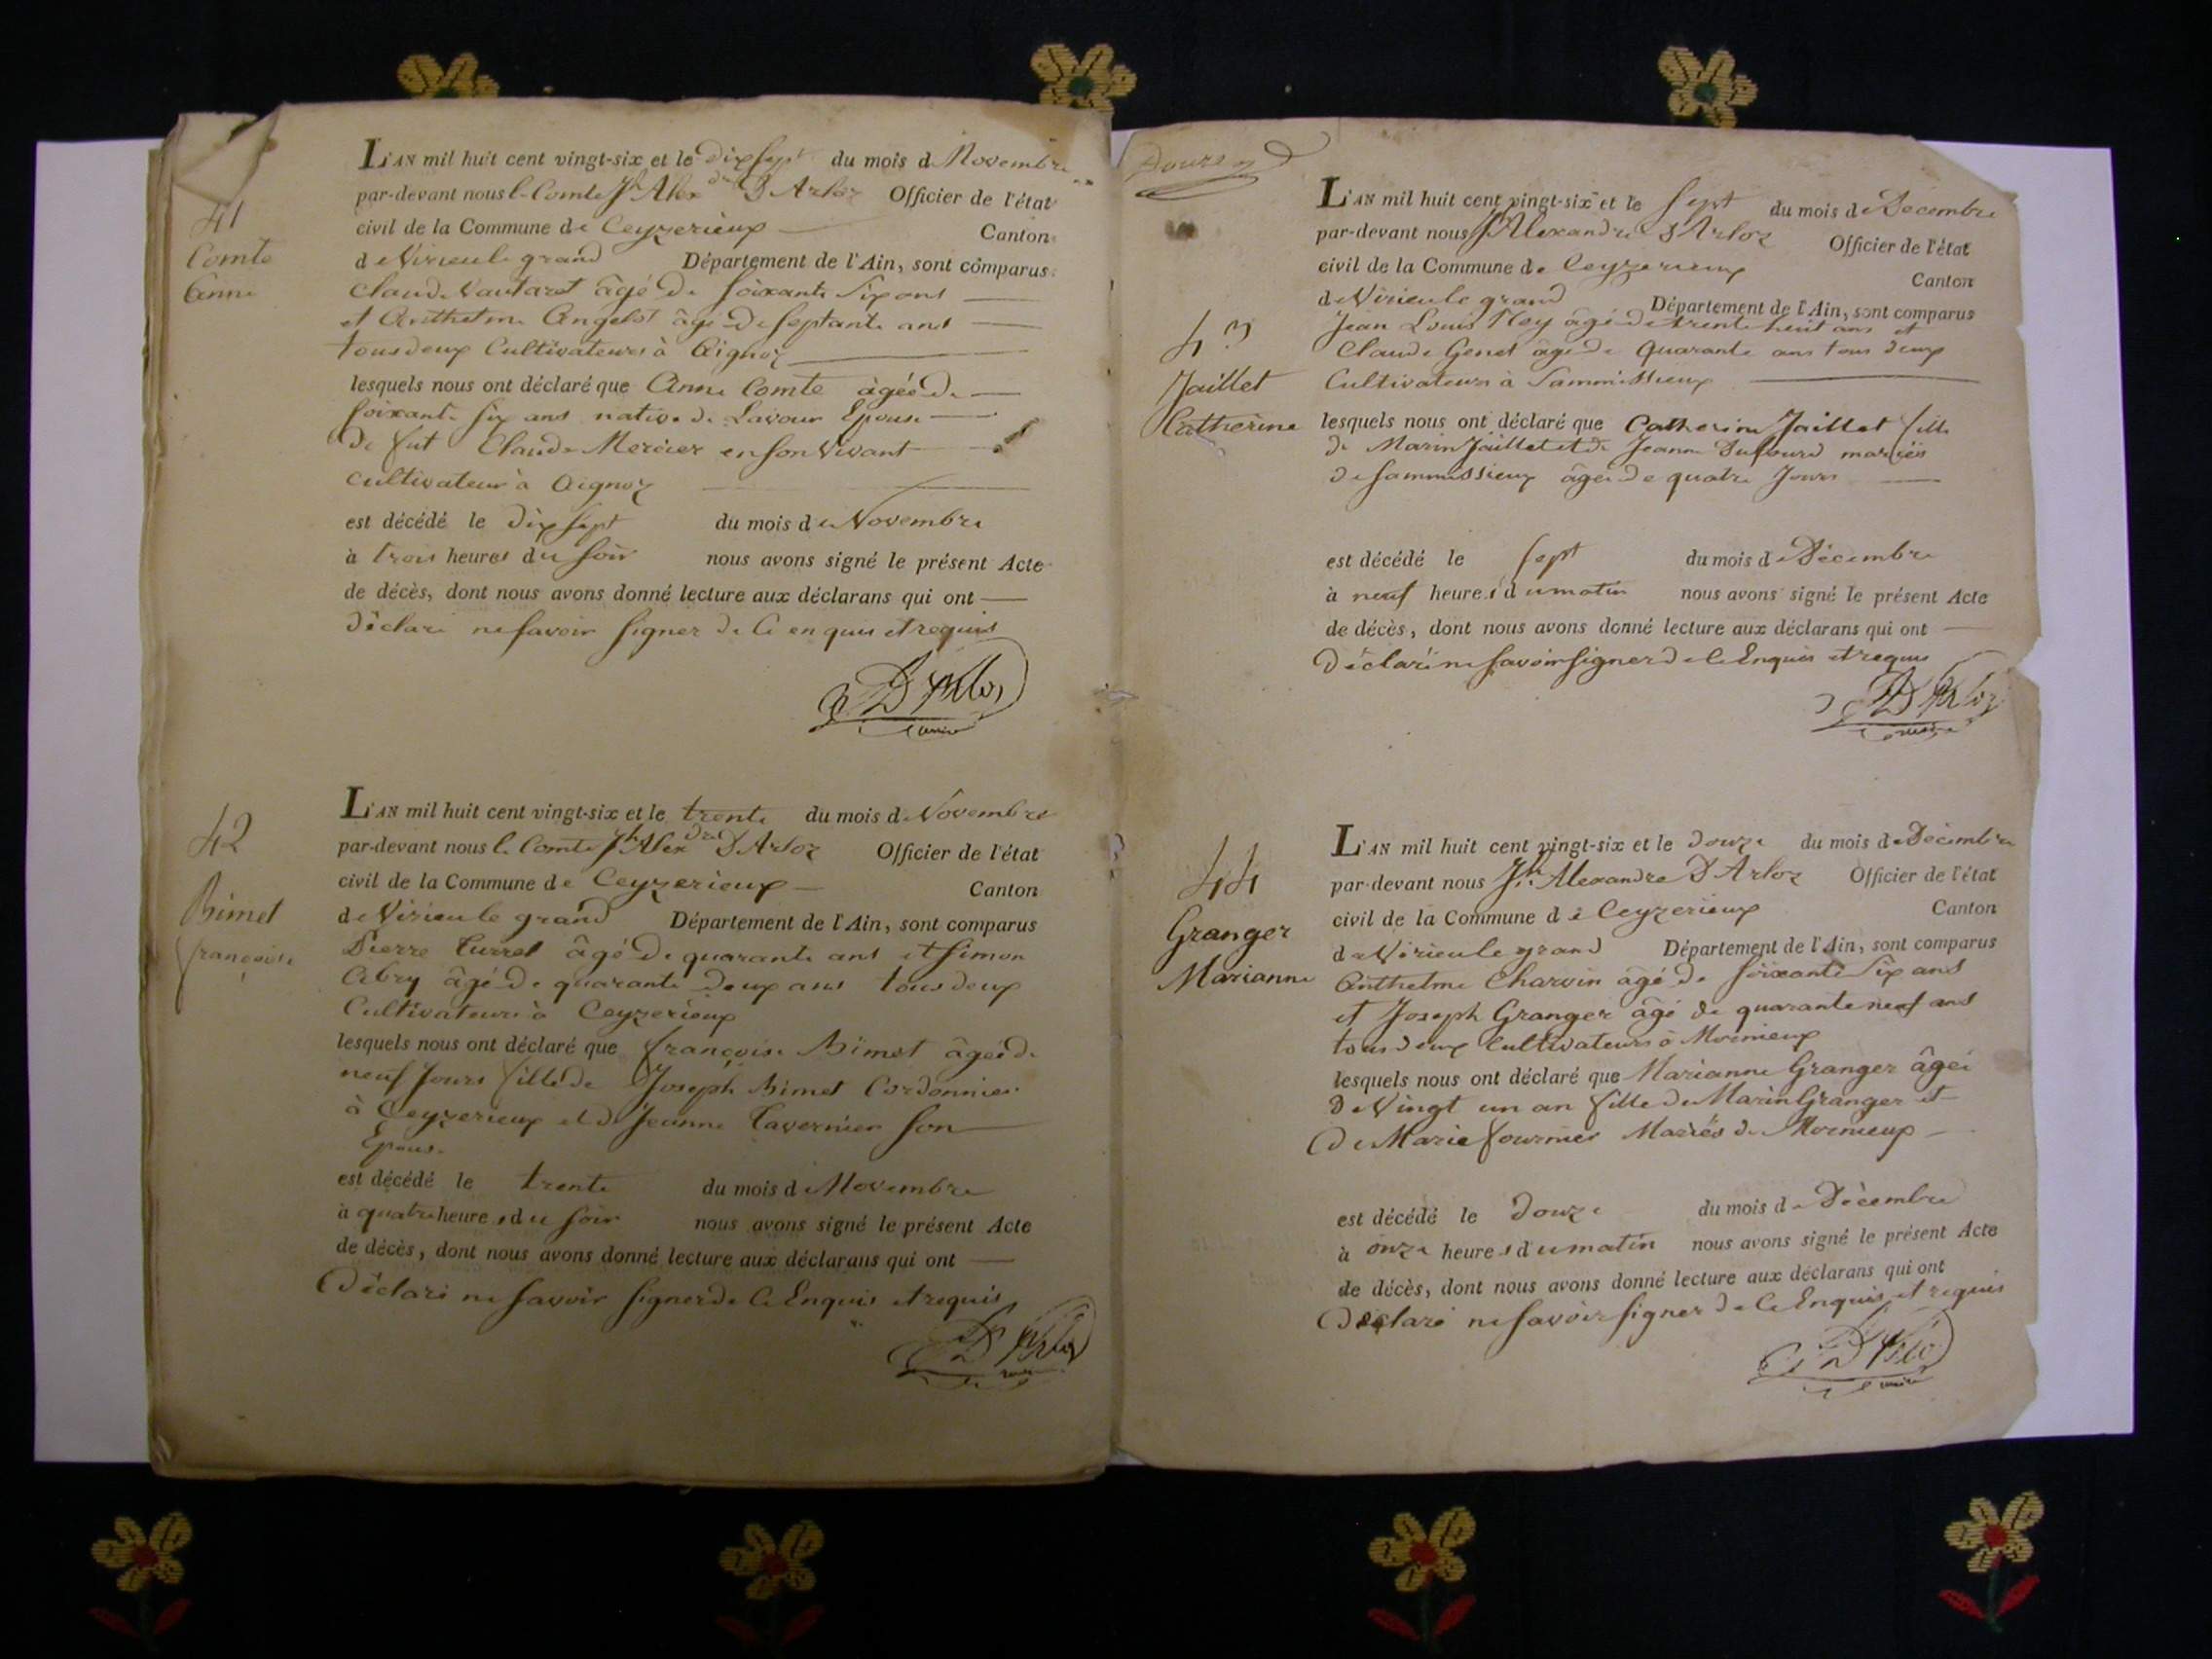 41
Comte
Anne
L'AN mil huit cent vingt-six et le dix sept du mois de Novembre
par-devant nous le Comte Jh Alexdre D'Arloz Officier de l'état
civil de la Commune de Ceyzerieux Canton
de Virieu le grand Département de l'Ain, sont comparus
Claude Vautaret âgé de soixante six ans
et Anthelme Angelot âgé de septante ans
tous deux Cultivateurs à Aignoz
lesquels nous ont déclaré que Anne Comte âgée de
soixante six ans native de Lavour Epouse
de fut Claude Mercier en son vivant
cultivateur à Aignoz
est décédé le dix sept du mois de Novembre
à trois heures du soir nous avons signé le présent Acte
de décès, dont nous avons donné lecture aux déclarans qui ont
déclaré ne savoir signer de ce enquis et requis
D'Arloz
maire
42
Bimet
françoise
L'AN mil huit cent vingt-six et le trente du mois de Novembre
par-devant nous le Comte Jh Alexdre D'Arloz Officier de l'état
civil de la Commune de Ceyzerieux Canton
de Virieu le grand Département de l'Ain, sont comparus
Pierre Curret âgé de quarante ans et Simon
Abry âgé de quarante deux ans tous deux
Cultivateurs à Ceyzerieux
lesquels nous ont déclaré que françoise Bimet âgée de
neuf Jours fille de Joseph Bimet Cordonnier
à Ceyzerieux et de Jeanne Tavernier son
Epouse
est décédé le trente du mois de Novembre
à quatre heures du soir nous avons signé le présent Acte
de décès, dont nous avons donné lecture aux déclarans qui ont
Déclaré ne savoir signer de ce Enquis et requis
D'Arloz
maire
43
Jaillet
Catherine
L'AN mil huit cent vingt-six et le sept du mois de Décembre
par-devant nous Jh Alexandre D'Arloz Officier de l'état
civil de la Commune de Ceyzerieux Canton
de Virieu le grand Département de l'Ain, sont comparus
Jean Louis Mey âgé de trente huit ans et
Claude Genet âgé de quarante ans tous deux
Cultivateurs à Sammissieux
lesquels nous ont déclaré que Catherine Jaillet fille
de Marin Jaillet et de Jeanne Dufourd mariés
de Sammissieux âgée de quatre Jours
est décédé le sept du mois de Décembre
à neuf heures du matin nous avons signé le présent Acte
de décès, dont nous avons donné lecture aux déclarans qui ont
Déclaré ne savoir signer de ce Enquis et requis
D'Arloz
maire
44
Granger
Marianne
L'AN mil huit cent vingt-six et le douze du mois de Décembre
par-devant nous Jh Alexandre D'Arloz Officier de l'état
civil de la Commune de Ceyzerieux Canton
de Virieu le grand Département de l'Ain, sont comparus
Anthelme Charvin âgé de soixante six ans
et Joseph Granger âgé de quarante neuf ans
tous deux Cultivateurs à Mornieux
lesquels nous ont déclaré que Marianne Granger âgée
de Vingt un an fille de Marin Granger et
de Marie fournier Mariés de Mornieux
est décédé le douze du mois de Décembre
à onze heures du matin nous avons signé le présent Acte
de décès, dont nous avons donné lecture aux déclarans qui ont
Déclaré ne savoir signer de ce Enquis et requis
D'Arloz
maire